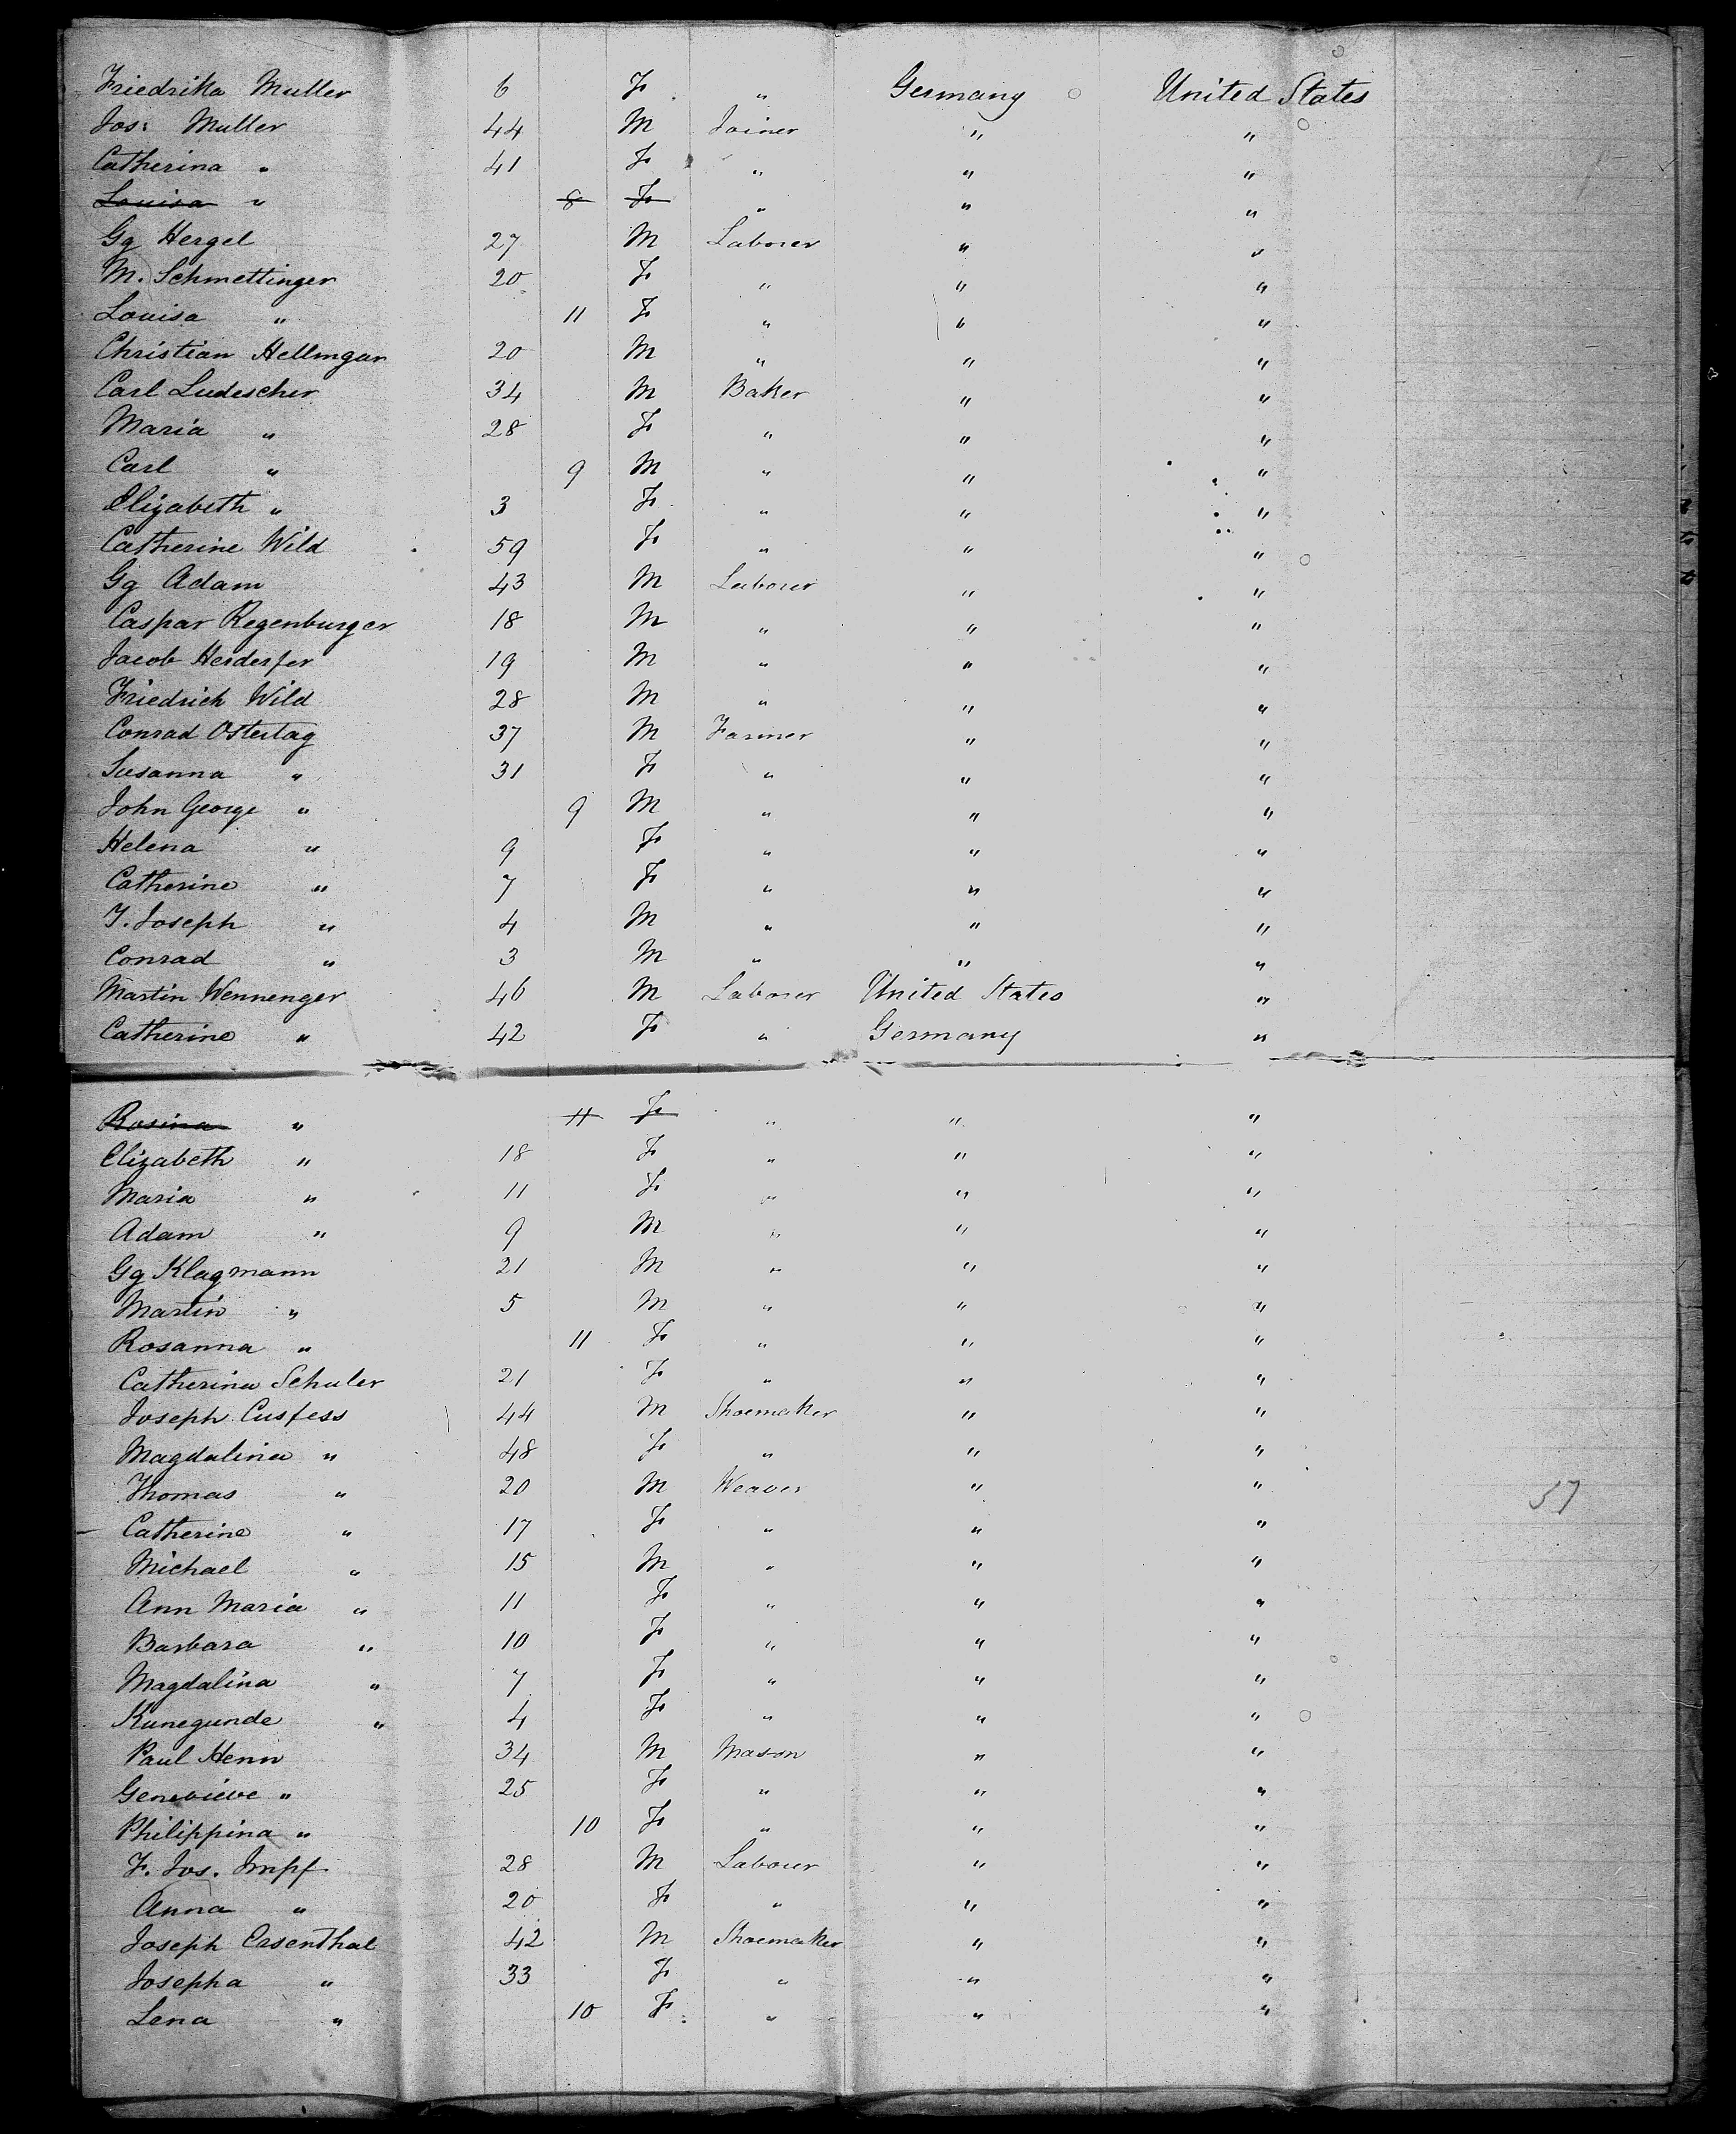 Friedrika Muller 6 F " Germany United States
Jos: Muller 44 M Joiner " "
Catherina " 41 F " " "
Louisa " 8 F " " "
Gg Hergel 27 M Laborer " "
M. Schmettinger 20 F " " "
Louisa " 11 F " " "
Christian Hellmgar 20 M " " "
Carl Ludescher 34 M Baker " "
Maria " 28 F " " "
Carl " 9 M " " "
Elizabeth " 3 F " " "
Catherine Wild 59 F " " "
Gg Adam 43 M Laborer " "
Caspar Regenburger 18 M " " "
Jacob Herderfer 19 M " " "
Friedrich Wild 28 M " " "
Conrad Ostertag 37 M Farmer " "
Susanna " 31 F " " "
John George " 9 M " " "
Helena " 9 F " " "
Catherine " 7 F " " "
F. Joseph " 4 M " " "
Conrad " 3 M " " "
Martin Wennenger 46 M Laborer United States "
Catherine " 42 F " Germany "
Rosina " 11 F " " "
Elizabeth " 18 F " " "
Maria " 11 F " " "
Adam " 9 M " " "
Gg Klagmann 21 M " " "
Martin " 5 M " " "
Rosanna " 11 F " " "
Catherina Schuler 21 F " " "
Joseph Cusfess 44 M Shoemaker " "
Magdalina " 48 F " " "
Thomas " 20 M Weaver " " 57
Catherine " 17 F " " "
Michael " 15 M " " "
Ann Maria " 11 F " " "
Barbara " 10 F " " "
Magdalina " 7 F " " "
Kunegunde " 4 F " " "
Paul Henn 34 M Mason " "
Genevieve " 25 F " " "
Philippina " 10 F " " "
F. Jos. Impf 28 M Labourer " "
Anna " 20 F " " "
Joseph Ersenthal 42 M Shoemaker " "
Josepha " 33 F " " "
Lena " 10 F " " "